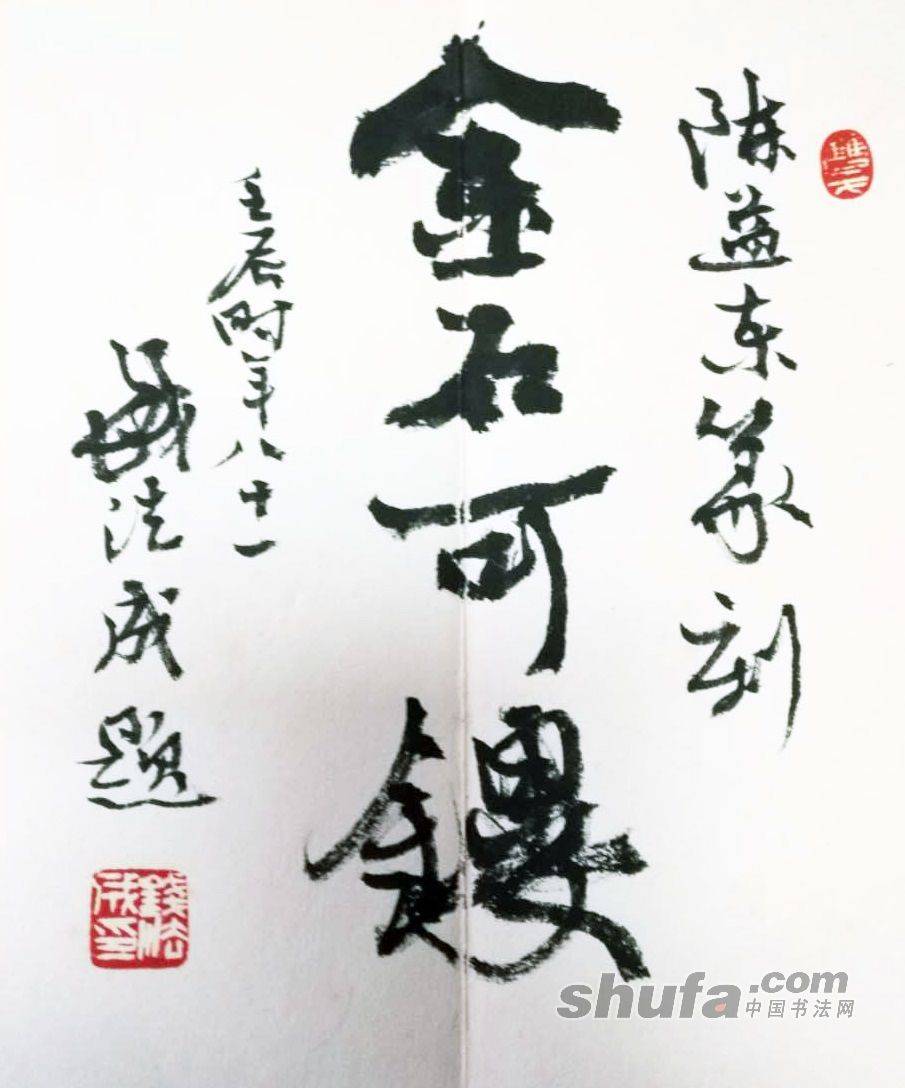 陈益东篆刻
金石可鏤
壬辰时年八十一
錢法成题
錢法成印
shufa.com
中国书法网